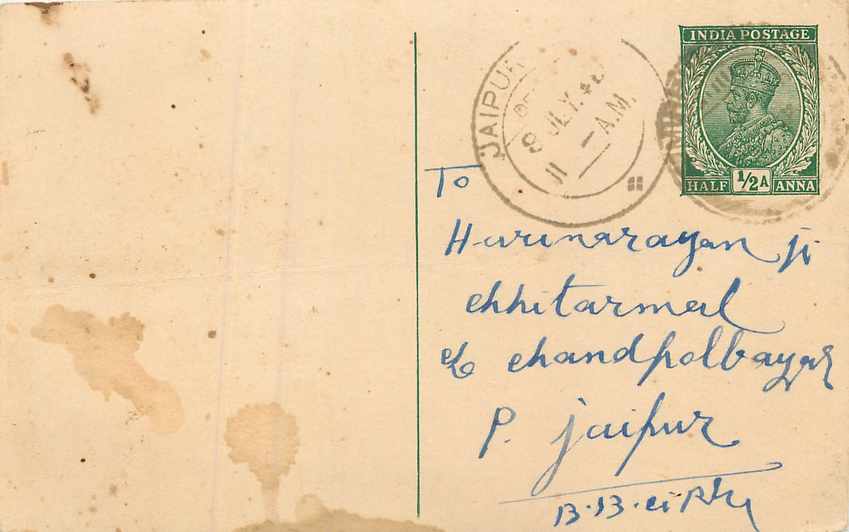 INDIA POSTAGE
½A
HALF ANNA
JAIPUR
9 JLY.4
11 - A.M.
To
Harinarayan ji
chhitarmal
c/o chandpolbazar
P. jaipur
B.B.ci Rly